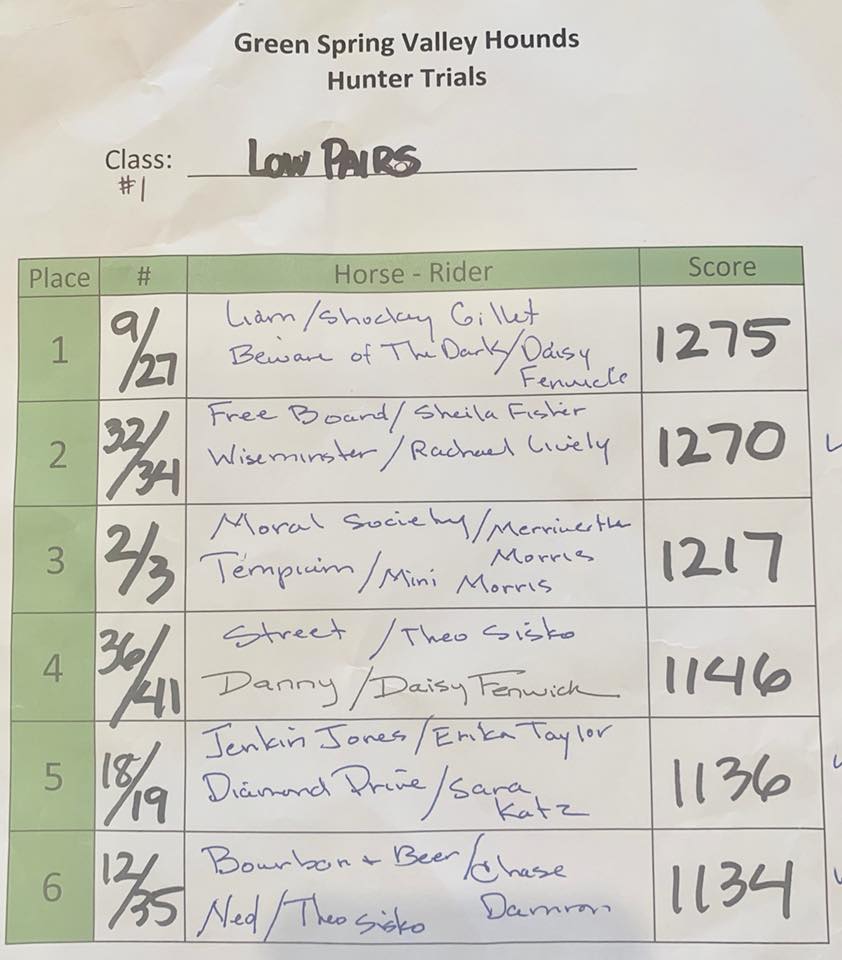 Green Spring Valley Hounds
Hunter Trials
Class: LOW PAIRS
#1
Place # Horse - Rider Score
1 9/27 Liam/Shockey Gillet 1275
Beware of The Dark/Daisy
Fenwick
2 32/34 Free Board/Sheila Fisher 1270
Wiseminster/Rachael Lively
3 2/3 Moral Society/Merriwether 1217
Morris
/Mini Morris
4 36/41 Street /Theo Sisko 1146
Danny/Daisy Fenwick
5 18/19 Jenkin Jones/Erika Taylor 1136
Diamond Drive/Sara
Katz
6 12/35 Bourbon + Beer/Chase 1134
Damron
Ned/Theo Sisko